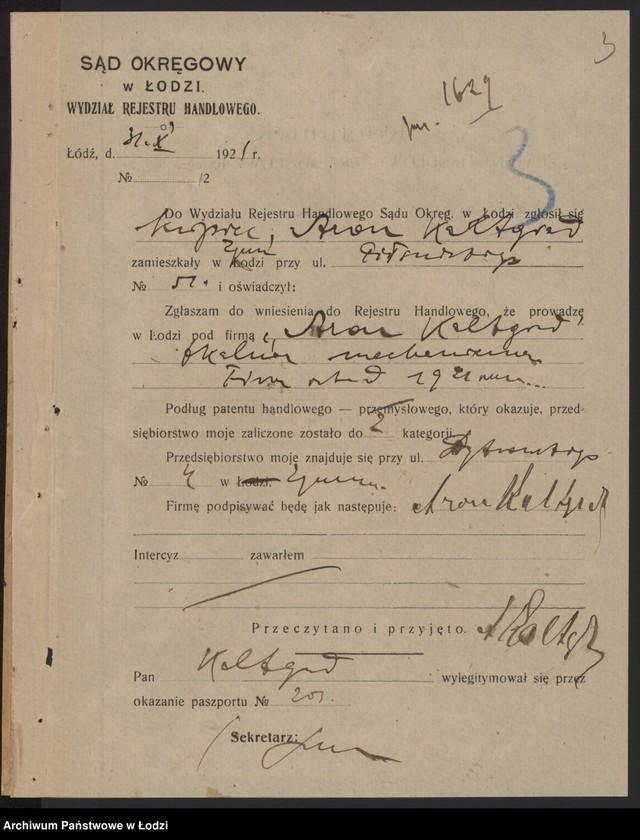 3
SĄD OKRĘGOWY
W ŁODZI.
WYDZIAŁ REJESTRU HANDLOWEGO.
1629
3
Łódź, d. 31.X 1921 r.
№ /2
Do Wydziału Rejestru Handlowego Sądu Okręg. w Łodzi zgłosił się
kupiec, Aron Kaltgrad
zamieszkały w Łodzi przy ul. Piłsudskiego
№ 51. i oświadczył:
Zgłaszam do wniesienia do Rejestru Handlowego, że prowadzę
w Łodzi pod firmą „Aron Kaltgrad"
tkalnia mechaniczna
Firma od 1921
Podług patentu handlowego — przemysłowego, który okazuje, przed-
siębiorstwo moje zaliczone zostało do 2 kategorji
Przedsiębiorstwo moje znajduje się przy ul.
№ 4 w Łodzi.
Firmę podpisywać będę jak następuje: Aron Kaltgrad
Intercyz zawarłem
Przeczytano i przyjęto. A Kaltgrad
Pan Kaltgrad wylegitymował się przez
okazanie paszportu № 201.
Sekretarz:
Archiwum Państwowe w Łodzi